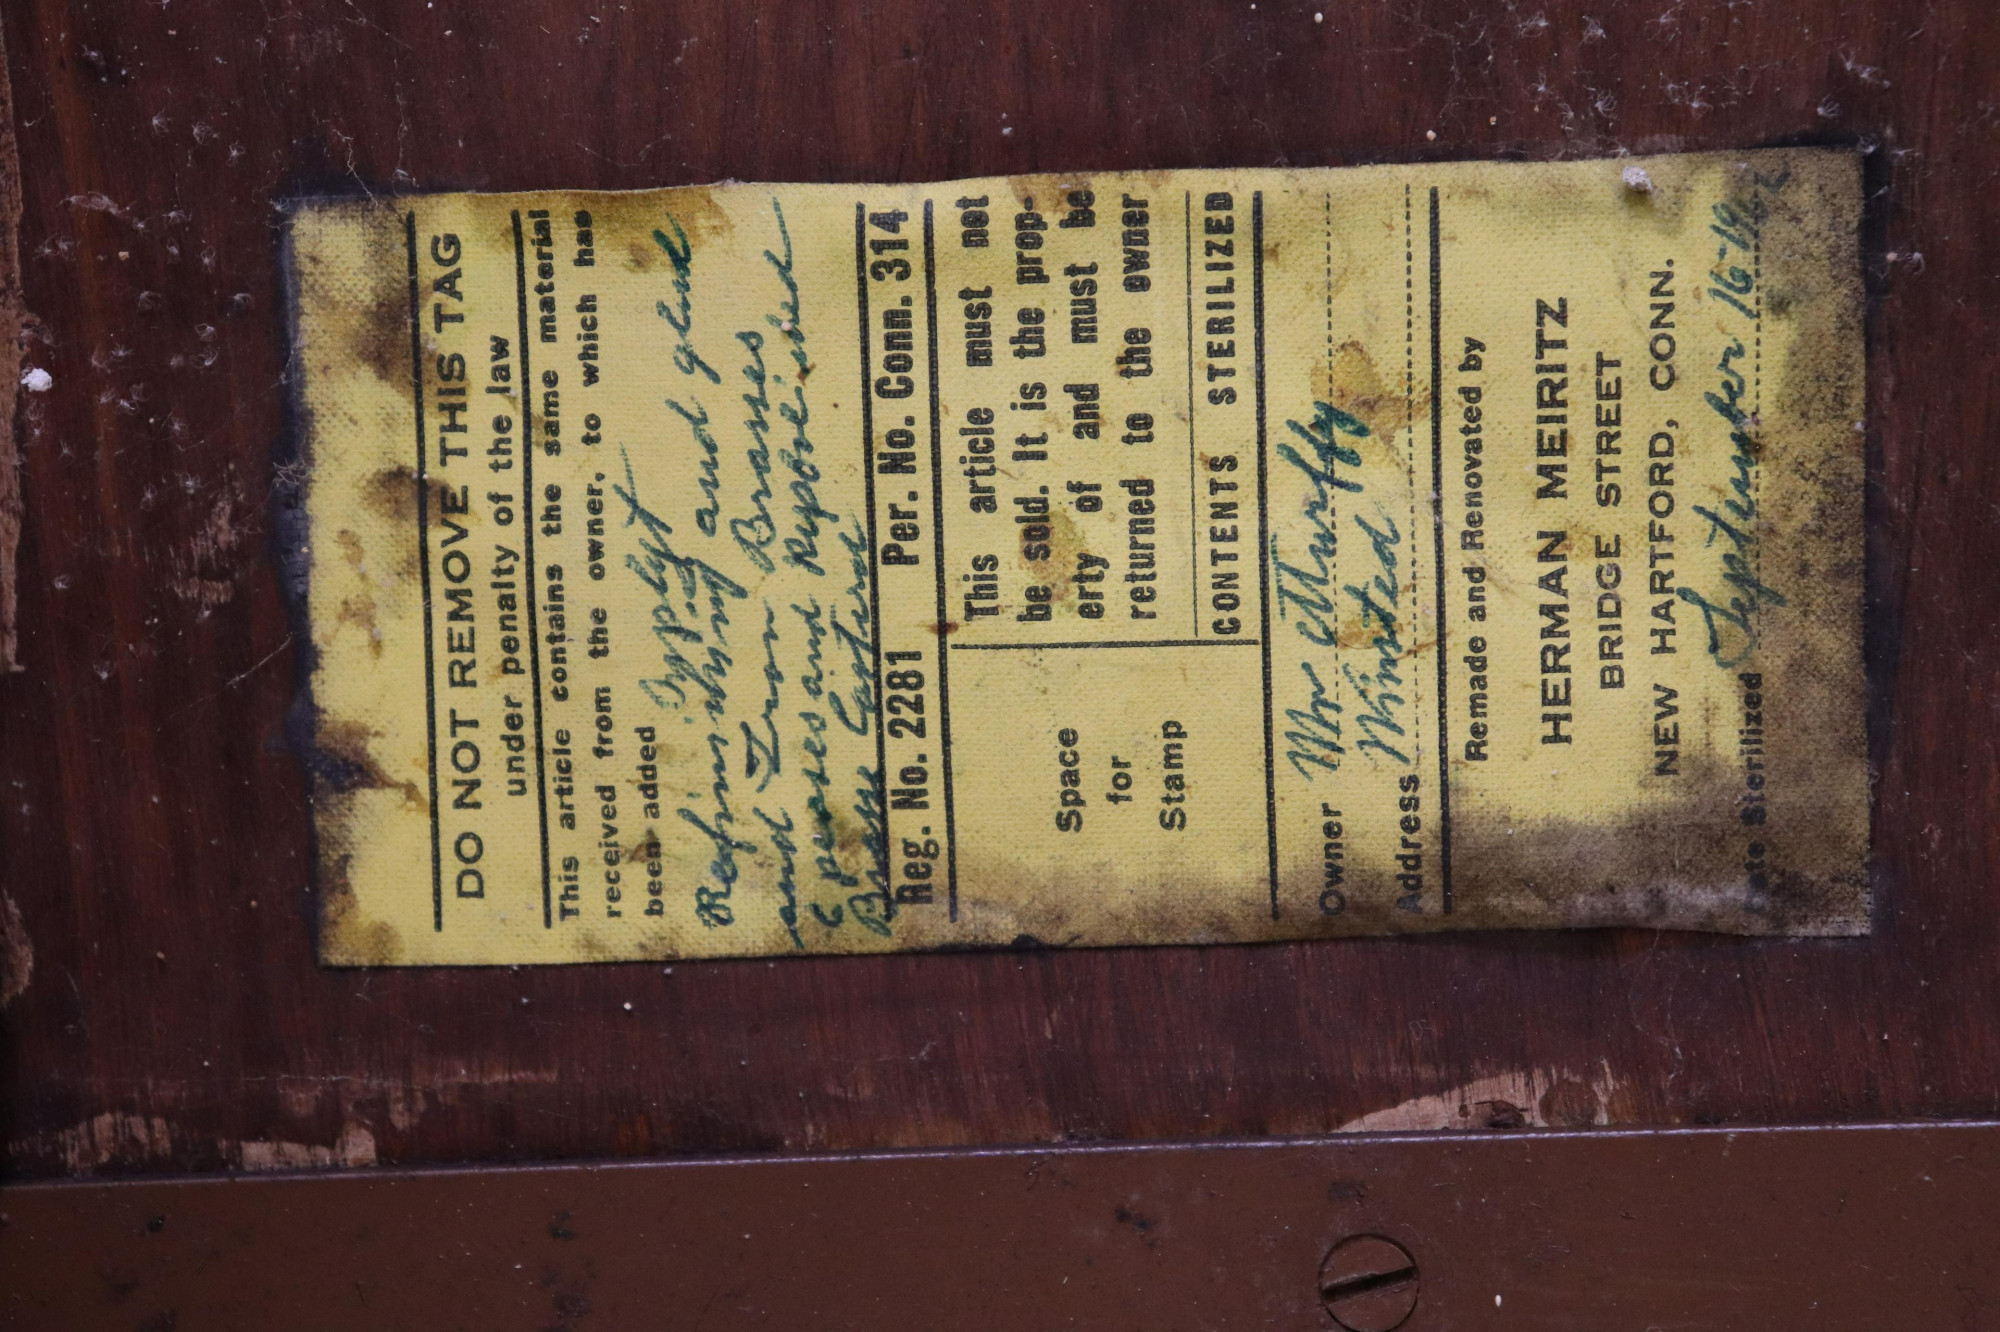 DO NOT REMOVE THIS TAG
under penalty of the law
This article contains the same material
received from the owner, to which has
been added
Refinishing and glued
and Iron Brasses
6 peases and Repolished
Brass Casters
Reg. No. 2281 Per. No. Conn. 314
Space
for
Stamp
This article must not
be sold. It is the prop-
erty of and must be
returned to the owner
CONTENTS STERILIZED
Owner Mr
Address Winsted
Remade and Renovated by
HERMAN MEIRITZ
BRIDGE STREET
NEW HARTFORD, CONN.
Date Sterilized September 16-19